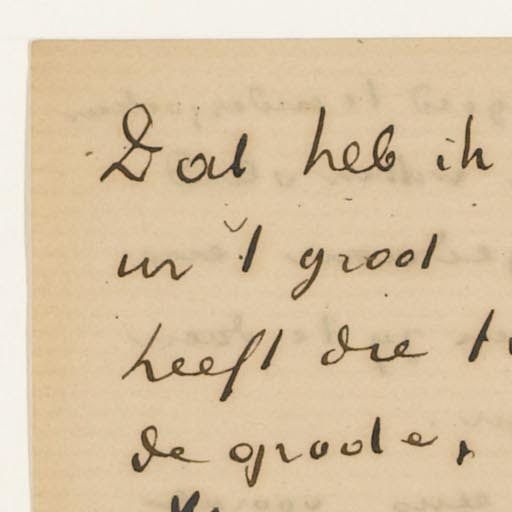 Dat heb ik
in 't groot
heeft die
de groote,